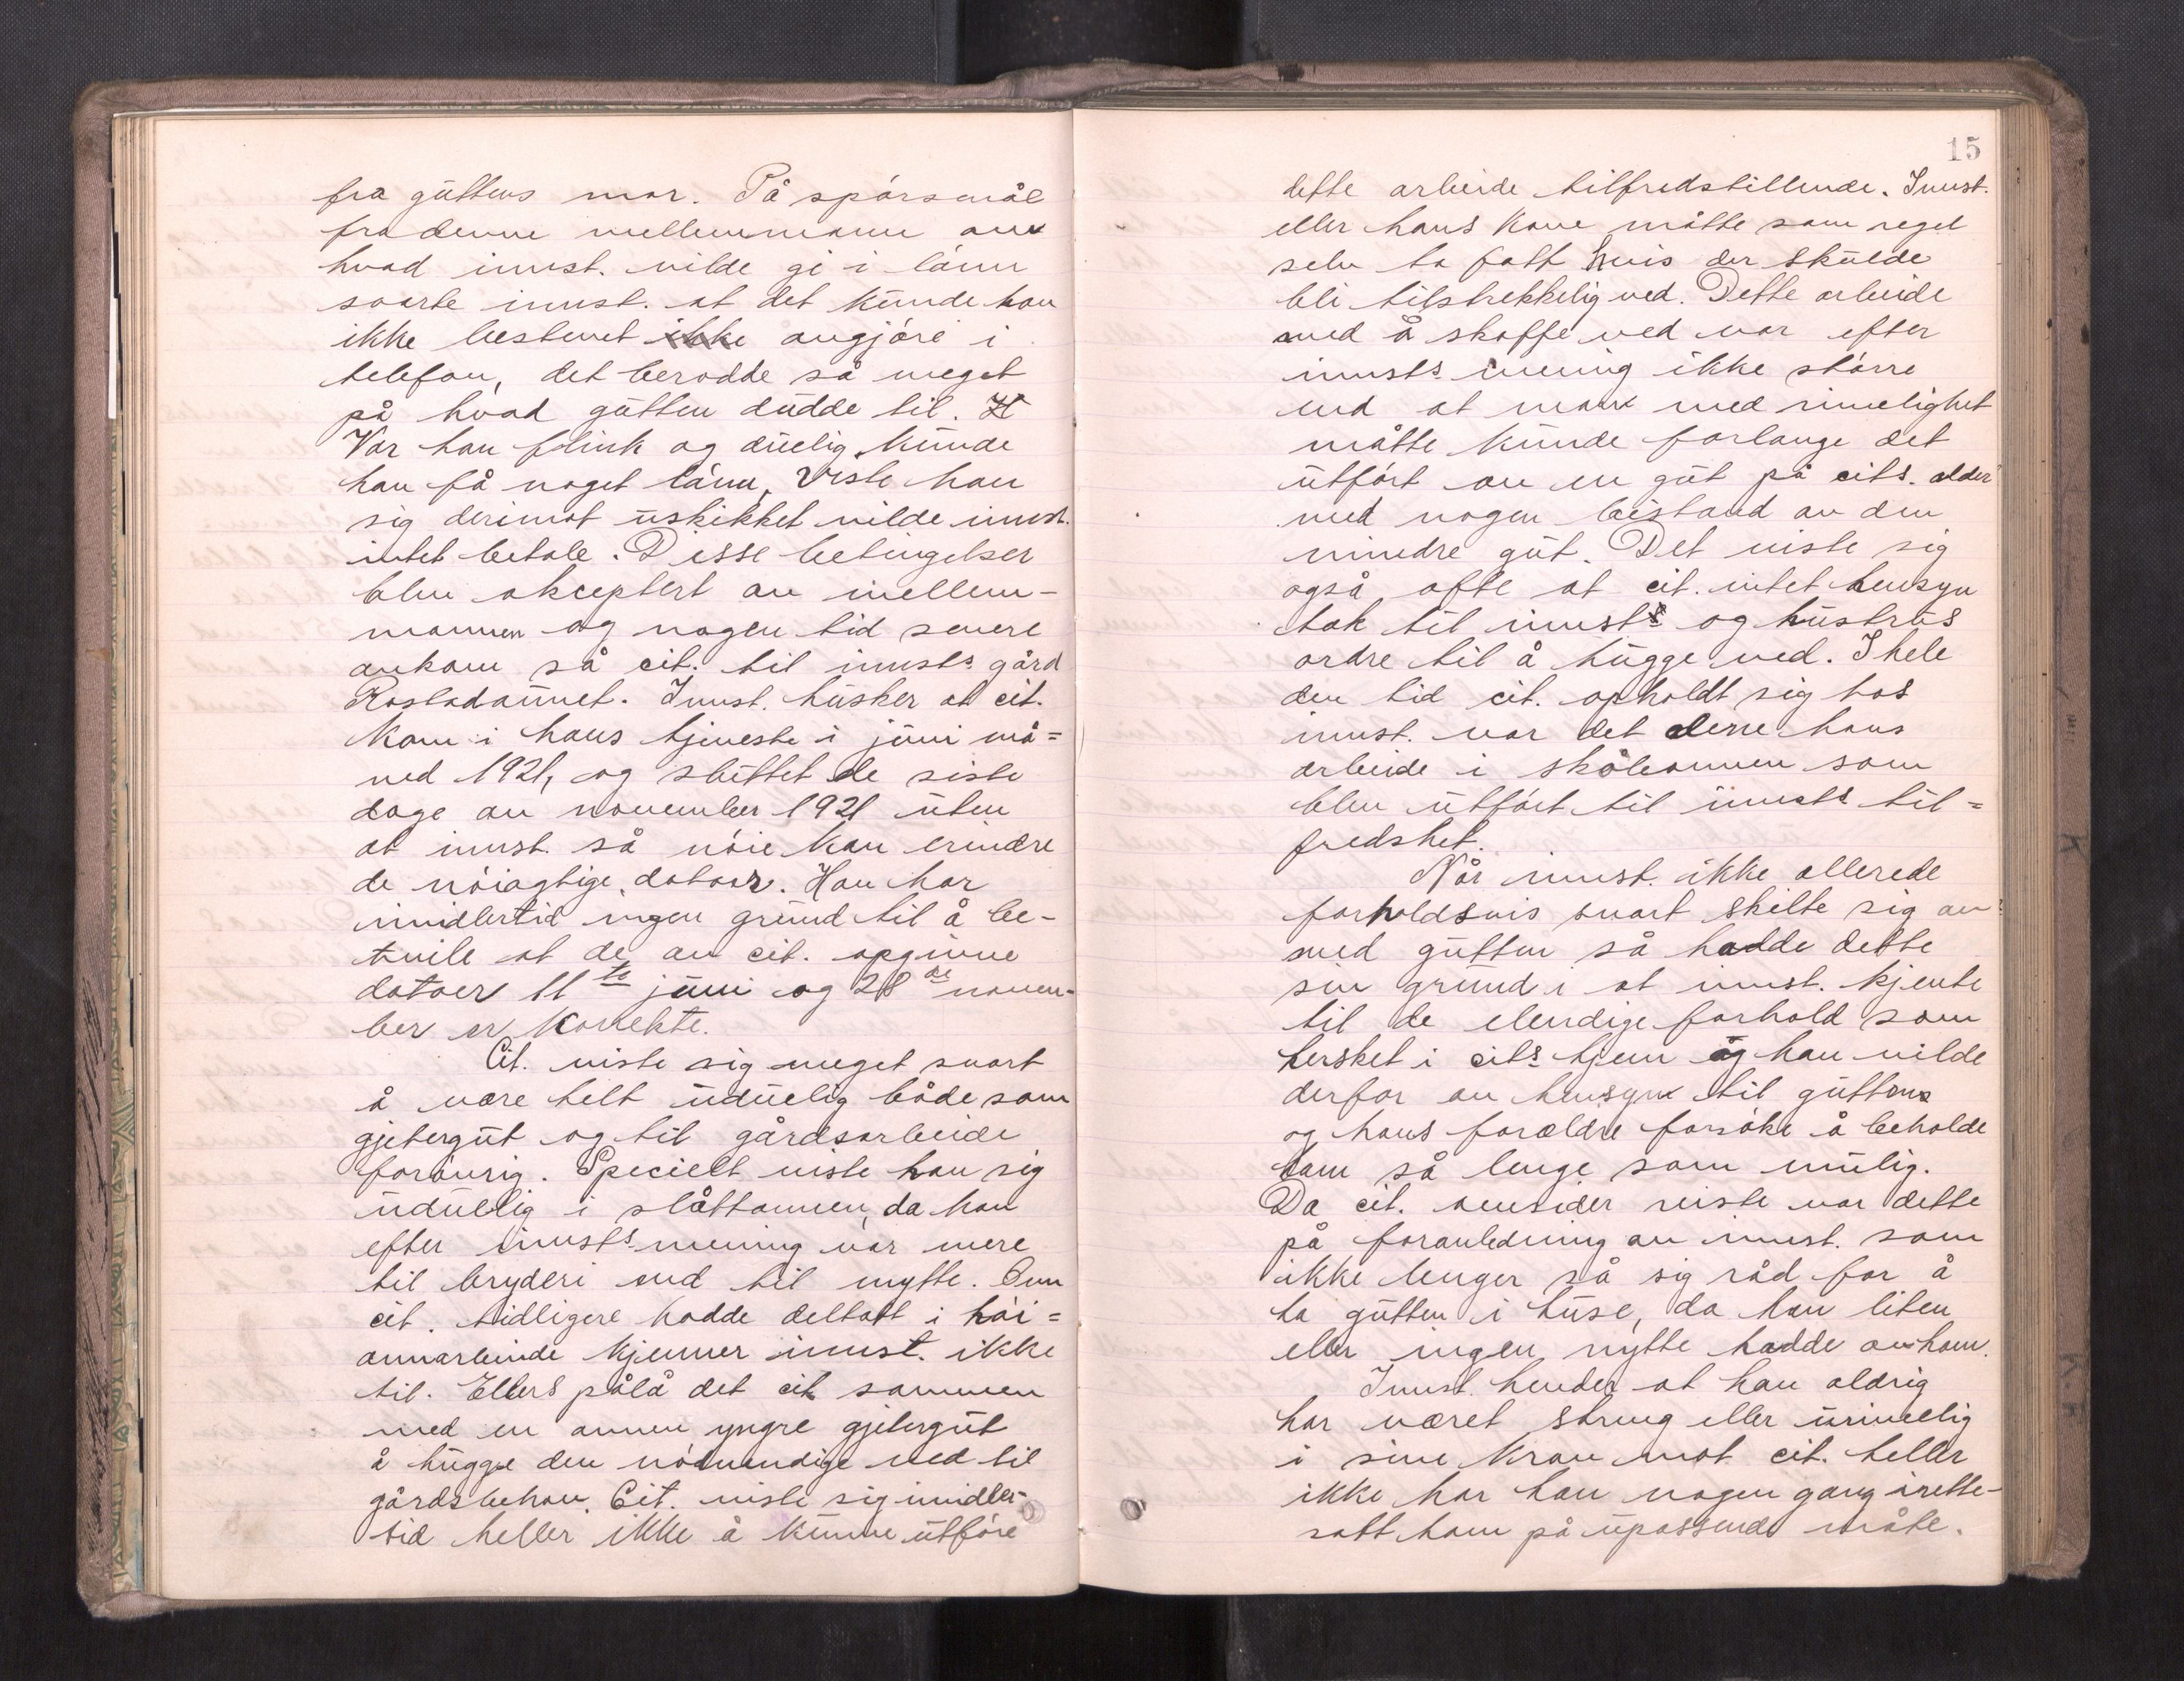 fra guttens mor. På spørsmål
fra denne mellemmann om
hvad innst. vilde gi i lønn
svarte innst. at det kunde han
ikke bestemt ikke avgjøre i
telefon, det berodde så meget
på hvad gutten dudde til. H
Var han flink og duelig kunde
han få noget lønn, viste han
sig derimot uskikket vilde innst.
intet betale. Disse betingelser
blev akceptert av mellem-
mannen og nogen tid senere
ankom så cit. til innsts gård
Rostadaunet. Innst. husker at cit.
kom i hans tjeneste i juni må=
ned 1921, og sluttet de siste
dage av november 1921 uten
at innst. så nøie kan erindre
de nøiagtige datoer. Han har
imidlertid ingen grund til å be-
tvile at de av cit. opgivne
datoer 11te juni og 28de novem-
ber er korrekte.
Cit. viste sig meget snart
å være helt uduelig både som
gjetergut og til gårdsarbeide
forøvrig. Specielt viste han sig
uduelig i slåttonnen, da han
efter innsts mening var mere
til bryderi end til nytte. Om
cit. tidligere hadde deltatt i høi=
onnarbeide kjenner innst. ikke
til. Ellers pålå det cit sammen
med en annen yngre gjetergut
å hugge den nødvendige ved til
gårdsbehov. Cit. viste sig imidler-
tid heller ikke å kunne utføre
15
dette arbeide tilfredstillende. Innst.
eller hans kone måtte som regel
selv ta fatt hvis der skulde
bli tilstrekkelig ved. Dette arbeide
med å skaffe ved var efter
innsts mening ikke større
end at man med rimelighet
måtte kunde forlange det
utført av en gut på cits. alder
med nogen bistand av den
mindre gut. Det viste sig
også ofte at cit. intet hensyn
tok til innsts og hustrus
ordre til å hugge ved. I hele
den tid cit. opholdt sig hos
innst. var det alene hans
arbeide i skåleonnen som
blev utført til innsts til=
fredshet.
Når innst. ikke allerede
forholdsvis snart skilte sig av
med gutten så hadde dette
sin grund i at innst. kjente
til de elendige forhold som
hersket i cits hjem og han vilde
derfor av hensyn til guttens
og hans forældre forsøke å beholde
ham så lenge som mulig.
Da cit. omsider reiste var dette
på foranledning av innst. som
ikke lenger så sig råd for å
ha gutten i huse, da han liten
eller ingen nytte hadde av ham.
Innst. hevder at han aldrig
har været streng eller urimelig
i sine krav mot cit. heller
ikke har han nogen gang irette-
satt ham på upassende måte.